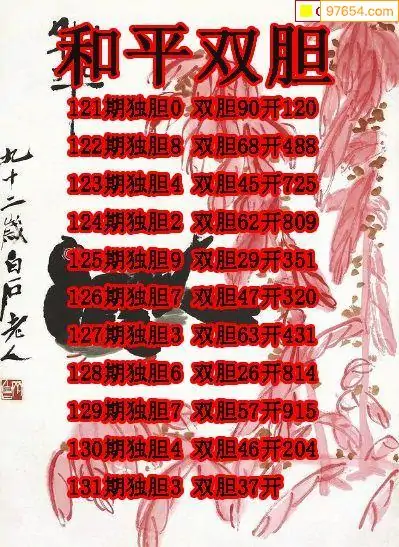 97654.com
和平双胆
121期独胆0 双胆90开120
122期独胆8 双胆68开488
123期独胆4 双胆45开725
124期独胆2 双胆62开809
125期独胆9 双胆29开351
126期独胆7 双胆47开320
127期独胆3 双胆63开431
128期独胆6 双胆26开814
129期独胆7 双胆57开915
130期独胆4 双胆46开204
131期独胆3 双胆37开
九十二岁白石老人